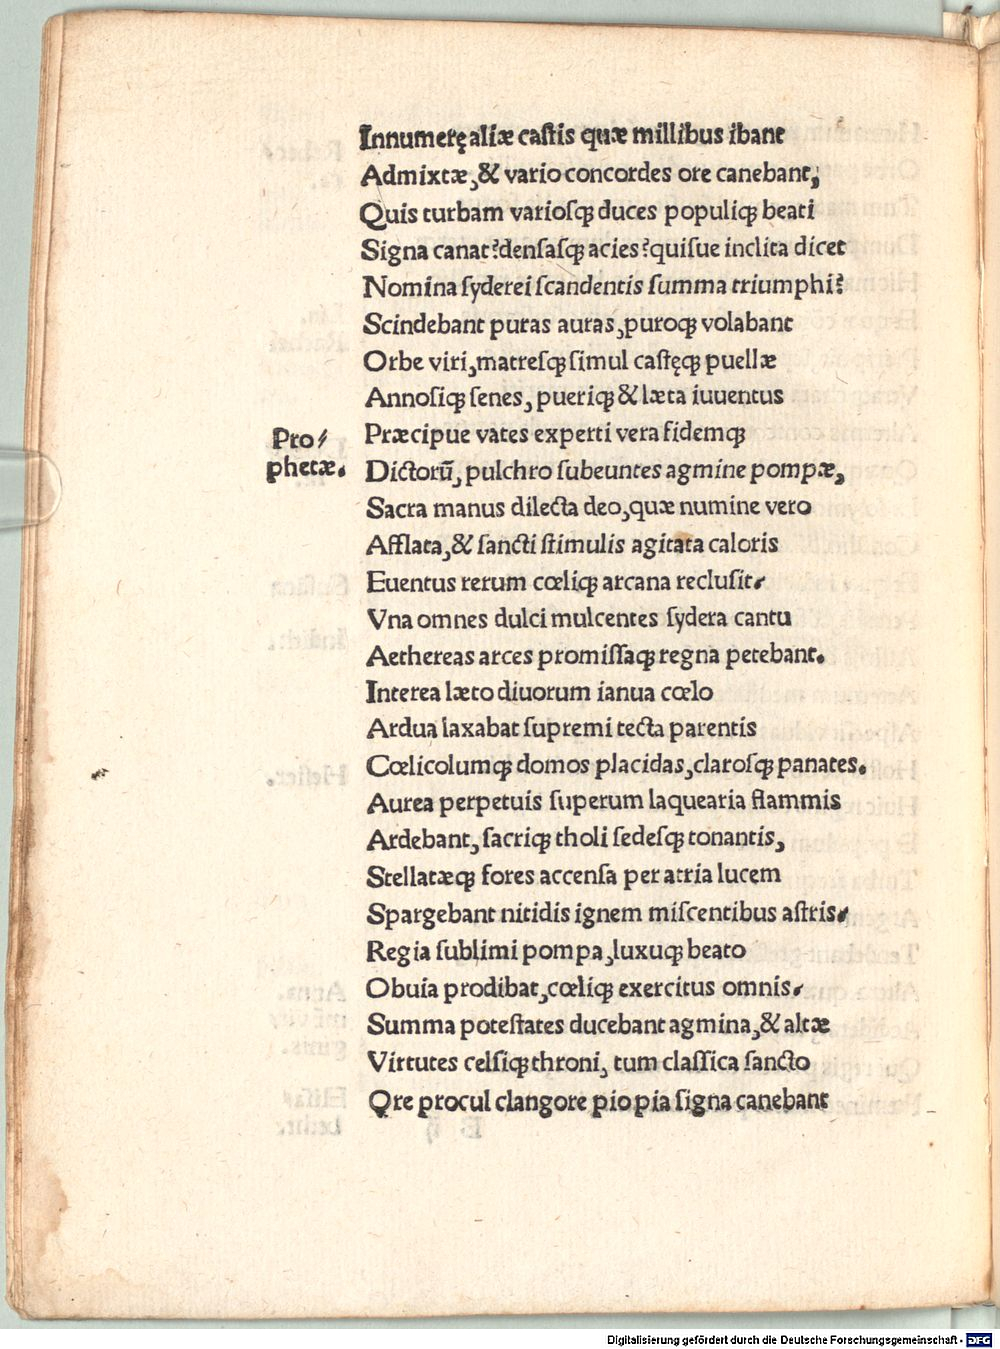 Innumerę aliæ castis quæ millibus ibant
Admixtæ,& vario concordes ore canebant,
Quis turbam variosqꝫ duces populiqꝫ beati
Signa canat?densasqꝫ acies?quisue inclita dicet
Nomina syderei scandentis summa triumphi?
Scindebant puras auras,puroqꝫ volabant
Orbe viri,matresqꝫ simul castęqꝫ puellæ
Annosiqꝫ senes, pueriqꝫ & læta iuuentus
Præcipue vates experti vera fidemqꝫ
Pro/
phetæ.
Dictorū, pulchro subeuntes agmine pompæ,
Sacra manus dilecta deo,quæ numine vero
Afflata,& sancti stimulis agitata caloris
Euentus rerum cœliqꝫ arcana reclusit.
Vna omnes dulci mulcentes sydera cantu
Aethereas arces promissaqꝫ regna petebant.
Interea læto diuorum ianua cœlo
Ardua laxabat supremi tecta parentis
Cœlicolumqꝫ domos placidas,clarosqꝫ panates.
Aurea perpetuis superum laquearia flammis
Ardebant, sacriqꝫ tholi sedesqꝫ tonantis,
Stellatæqꝫ fores accensa per atria lucem
Spargebant nitidis ignem miscentibus astris.
Regia sublimi pompa,luxuqꝫ beato
Obuia prodibat,cœliqꝫ exercitus omnis.
Summa potestates ducebant agmina,& altæ
Virtutes celsiqꝫ throni, tum classica sancto
Qre procul clangore pio pia signa canebant
Digitalisierung gefördert durch die Deutsche Forschungsgemeinschaft - DFG